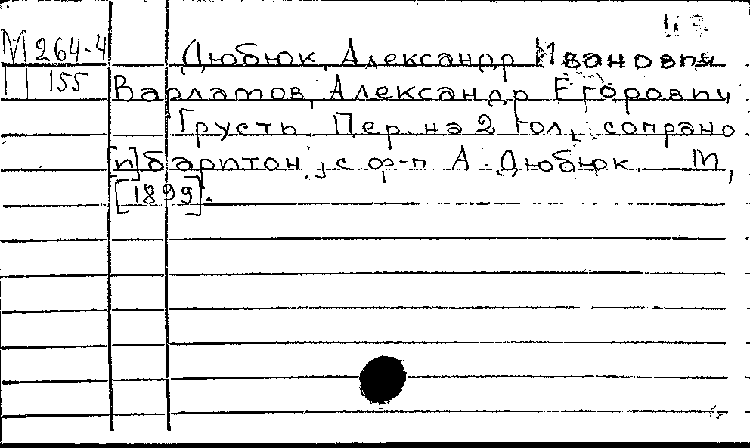 М 264-4 Дюбюк, Александр Иванович
П 155 Варламов, Александр Егорович
Грусть. Пер. на 2 гол., сопрано
[и] баритон, с ф-п А. Дюбюк. М,
[1899].